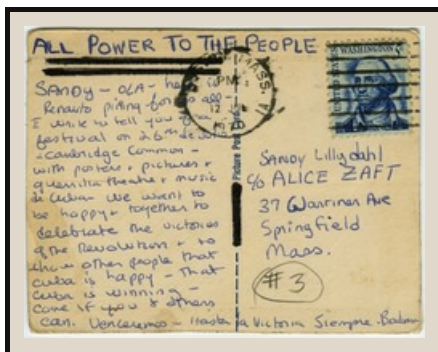 ALL POWER TO THE PEOPLE
SANDY - OLA -
Renauto for all -
I write to tell you of a
festival on 26th de
- Cambridge Common -
with posters + pictures +
guerrilla theatre + music
de Cuba. We want to
be happy + together to
celebrate the victories
of the Revolution + to
show other people that
Cuba is happy - that
Cuba is winning -
Come if you & others
can. Venceremos - Hasta la Victoria Siempre.
MASS.
PM
12
Picture Post Cards
WASHINGTON
SANDY Lillydahl
c/o ALICE ZAFT
37 Warriner Ave
Springfield
Mass.
#3